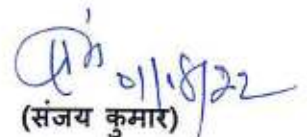 01/08/22
(संजय कुमार)